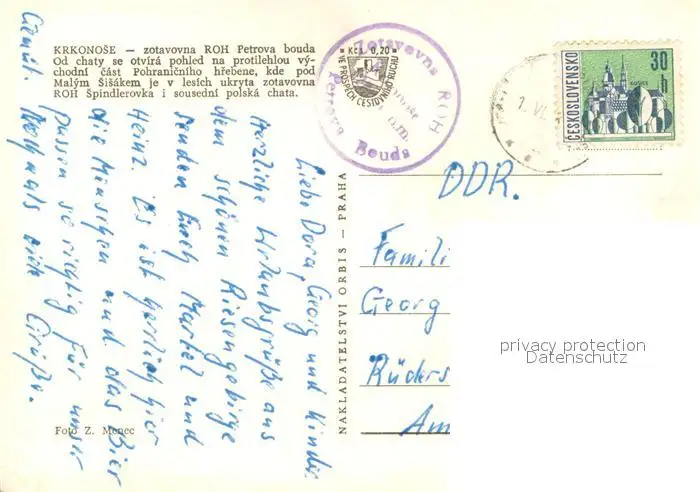 KRKONOŠE — zotavovna ROH Petrova bouda
Od chaty se otvírá pohled na protilehlou vý-
chodní část Pohraničního hřebene, kde pod
Malým Šišákem je v lesích ukryta zotavovna
ROH Špindlerovka i sousední polská chata.
Kčs 0,20
VE PROSPĚCH CESTOVNÍHO RUCHU
Zotavovna ROH
Petrova Bouda
1. VI.
ČESKOSLOVENSKO
30
h
KOŠICE
Liebe Dora, Georg und Kinder
Herzliche Urlaubsgrüße aus
dem schönen Riesengebirge
senden Euch Martel und
Heinz. Es ist herrlich hier
die Menschen und das Bier
passen so richtig für unser
Gemüt. Nochmals viele Grüße.
NAKLADATELSTVÍ ORBIS — PRAHA
DDR.
Famili
Georg
Rüders
Am
privacy protection
Datenschutz
Foto Z. Menec